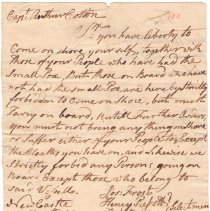 Capt. Arthur Cotton
Sr you have liberty to
Come on shore your self, together with
those of your People who have had the
Small Pox. But those on board who have
not had the small Pox are here by strictly
forbidden to Come on shore, but must
tarry on board, untill further Orders
you must not bring any thing on shore
or suffer either of your People to, Except
the Cloaths you have on, and likewise we
Strictly forbid any Persons going on
Board Except those who belong to
said Vessels.
Jos: Frost
New Castle
Selectmen